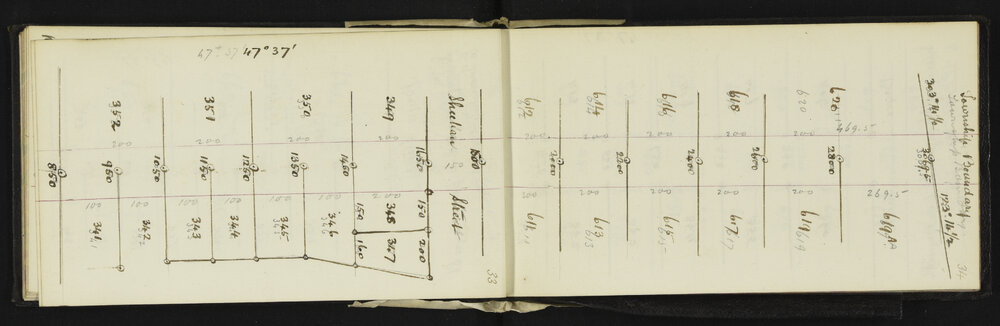 47° 37' 47° 37'
352
351
350
349
Sheehan
Street
200
200
200
200
850
950
1050
1150
1250
1350
1450
1650
150
1800
100
100
100
100
100
200
341
342
343
344
345
346
150
348
150
160
347
200
33
612
614
616
618
620
620
469.5
Township Boundary
303° 14 1/2
200
200
200
200
200
2000
2200
2400
2600
2800
3069.5
123° 14 1/2
200
200
200
200
200
269.5
611
613
613
615
615
617
17
619
619
619
34